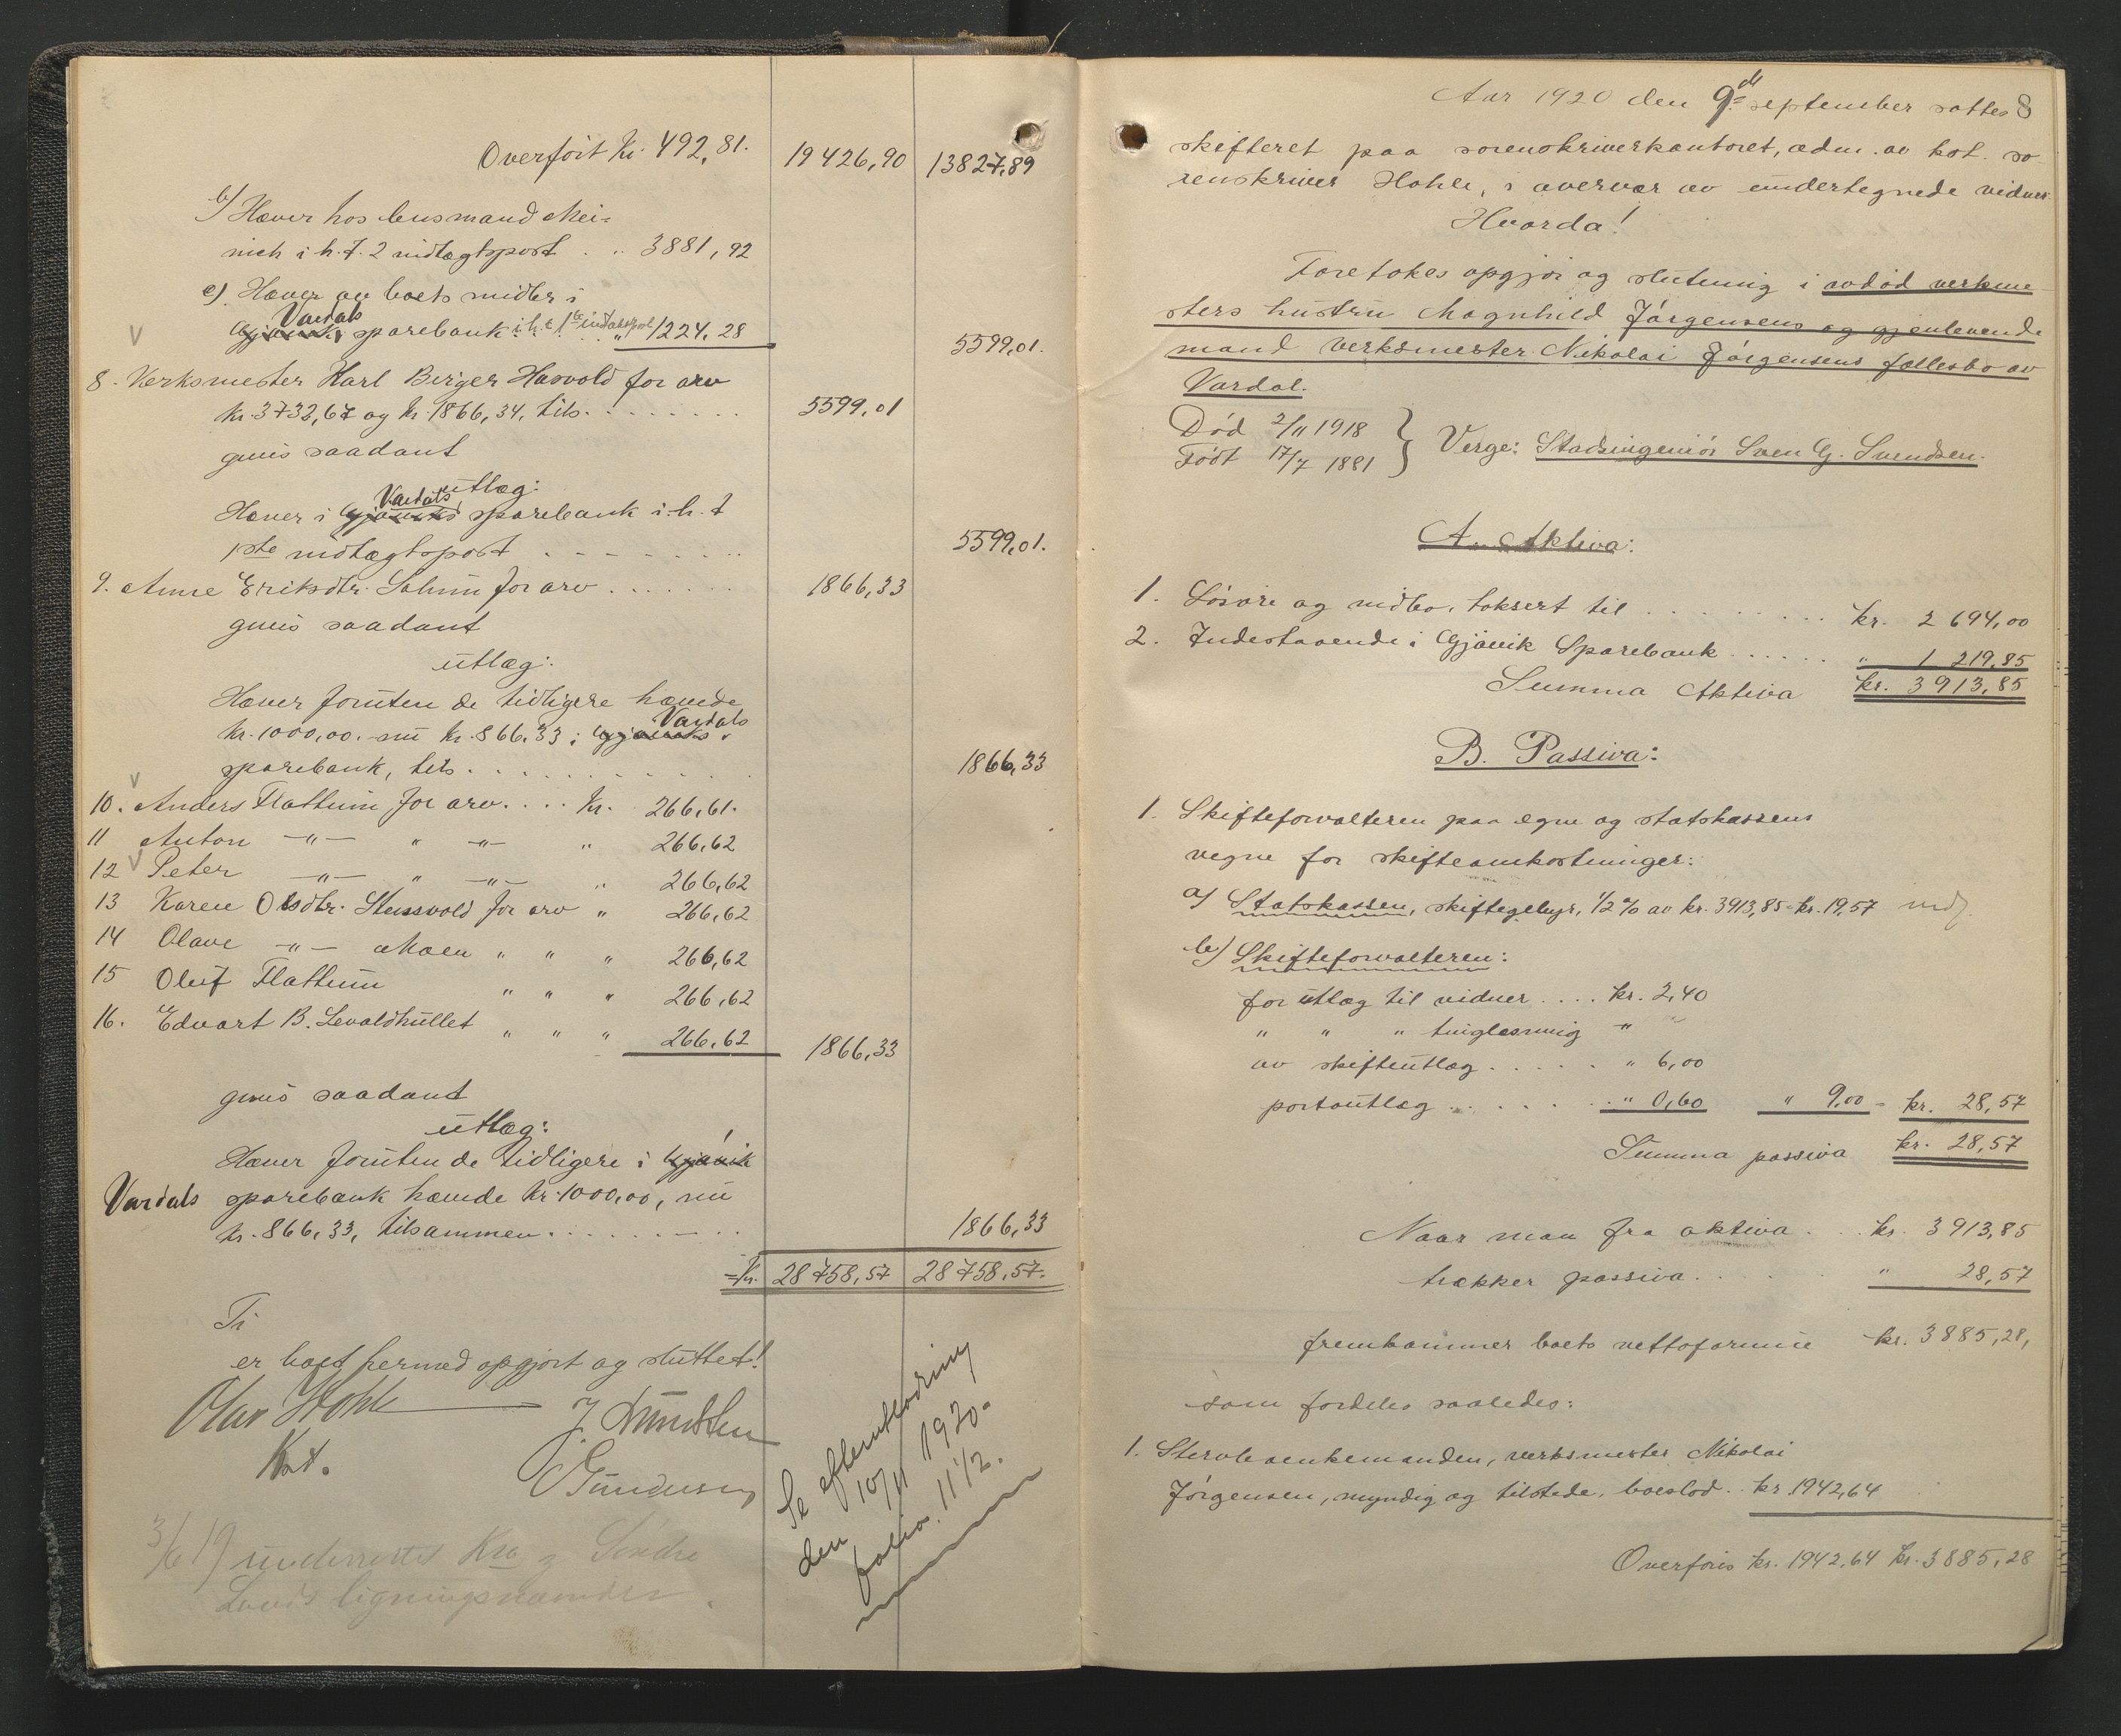 Overført kr. 492,81. 19426,90 13827,89
b) Hæver hos lensmand Mei-
nich i h. t. 2 indtægtspost . . „ 3881,92
c) Hæver av boets midler i
Vardals
Gjøviks sparebank i h. t. 1ste indtægtspost „ 1224,28 5599,01.
8. Verksmester Karl Birger Hasvold for arv
kr. 3732,67 og kr. 1866,34, tils. . . . . . . . 5599,01
gives saadant
utlæg:
Vardals
Hæver i Gjøviks sparebank i h. t.
1ste indtægtspost . . . . . . . . 5599,01.
9. Anne Eriksdtr. for arv . . . . . . . 1866,33
gives saadant
utlæg:
Hæver foruten de tidligere hævede
Vardals
kr. 1000,00. nu kr. 866,33 i Gjøviks
sparebank, tils. . . . . . . . . . . . 1866,33
10. Anders Flattum for arv. . . . kr. 266,61.
11 Anton —„— „ —„— „ 266,62
12 Peter —„— „ —„— „ 266,62
13 Karen Olsdtr. Stensvold for arv „ 266,62
14 Olave —„— Moen „ „ „ 266,62
15 Oluf Flattum „ „ „ 266,62
16. Edvart B. „ „ „ 266,62 1866,33
gives saadant
utlæg:
Hæver foruten de tidligere i Gjøvik
Vardals sparebank hævede kr. 1000,00, nu
kr. 866,33, tilsammen. . . . . . . . . 1866,33
kr. 28758,57 28758,57.
Ti
er boet hermed opgjort og sluttet!
Olav Hohle J. Amundsen
Kst. Gundersen
3/6 19 underrettet Kra og Søndre
Lands ligningsnævnder.
Se efterutlodning
den 10/11 1920.
folio. 11 1/2.
8
Aar 1920 den 9de september sattes
skifteret paa sorenskriverkontoret, adm. av kst. so-
renskriver Hohle, i overvær av undertegnede vidner.
Hvorda!
Foretokes opgjør og slutning i avdød verksme-
sters hustru Magnhild Jørgensens og gjenlevende
mand verksmester Nikolai Jørgensens fællesbo av
Vardal.
Død 2/11 1918
Født 17/7 1881 } Verge: Stadsingeniør Sven G. Svendsen.
A. Aktiva:
1. Løsøre og indbo, taksert til . . . . . . . . . kr. 2 694,00
2. Indestaaende i Gjøvik Sparebank . . . . . . „ 1 219,85
Summa Aktiva kr. 3 913,85
B. Passiva:
1. Skifteforvalteren paa egne og statskassens
vegne for skifteomkostninger:
a) Statskassen, skiftegebyr, 1/2 % av kr. 3913,85 = kr. 19,57
b) Skifteforvalteren:
for utlæg til vidner . . . . kr. 2,40
„ „ „ tinglesning „
av skifteutlæg . . . . . „ 6,00
portoutlæg . . . . . . . „ 0,60 „ 9,00 = kr. 28,57
Summa passiva kr. 28,57
Naar man fra aktiva . . . kr. 3 913,85
trækker passiva. . . . . „ 28,57
fremkommer boets nettoformue kr. 3885,28,
som fordeles saaledes:
1. Stervboenkemanden, verksmester Nikolai
Jørgensen, myndig og tilstede, boeslod. . kr. 1942,64
Overføres kr. 1942,64 kr. 3885,28